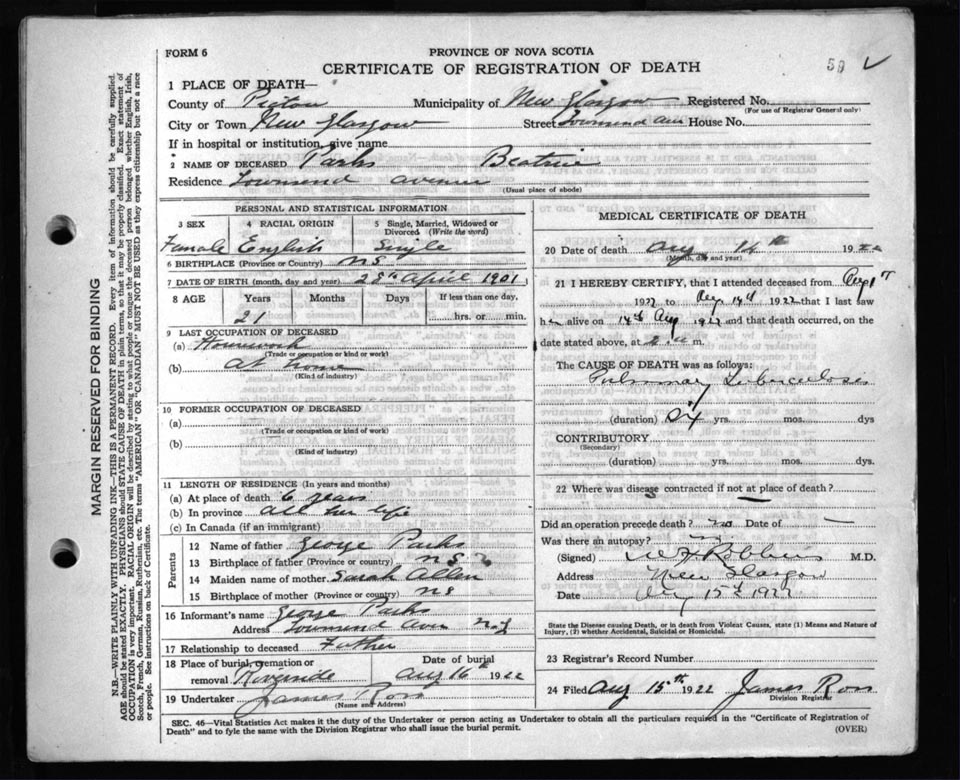 FORM 6
PROVINCE OF NOVA SCOTIA
CERTIFICATE OF REGISTRATION OF DEATH
1 PLACE OF DEATH—
County of Pictou Municipality of New Glasgow Registered No.
(For use of Registrar General only)
City or Town New Glasgow Street Townsend Ave House No.
If in hospital or institution, give name
2 NAME OF DECEASED Parks Beatrice
Residence Townsend avenue
(Usual place of abode)
PERSONAL AND STATISTICAL INFORMATION
3 SEX 4 RACIAL ORIGIN 5 Single, Married, Widowed or Divorced (Write the word)
Female English Single
6 BIRTHPLACE (Province or Country) N S
7 DATE OF BIRTH (month, day and year) 28th April 1901
8 AGE Years Months Days If less than one day,
21 hrs. or min.
9 LAST OCCUPATION OF DECEASED
(a) Housework
(Trade or occupation or kind or work)
(b) At home
(Kind of industry)
10 FORMER OCCUPATION OF DECEASED
(a)
(Trade or occupation or kind of work)
(b)
(Kind of industry)
11 LENGTH OF RESIDENCE (In years and months)
(a) At place of death 6 years
(b) In province all her life
(c) In Canada (if an immigrant)
Parents
12 Name of father George Parks
13 Birthplace of father (Province or country) N S
14 Maiden name of mother Sarah Allen
15 Birthplace of mother (Province or country) N S
16 Informant's name George Parks
Address Townsend Ave N. G
17 Relationship to deceased Father
18 Place of burial, cremation or removal Riverside Date of burial Aug 16th 1922
19 Undertaker James Ross
(Name and Address)
MEDICAL CERTIFICATE OF DEATH
20 Date of death Aug 14th 1922
(Month, day and year)
21 I HEREBY CERTIFY, that I attended deceased from
1922 to Aug 14th 1922 that I last saw
h alive on 14th Aug 1922 and that death occurred, on the
date stated above, at 2 a m.
The CAUSE OF DEATH was as follows:
Pulmonary Tuberculosis
(duration) Six yrs. mos. dys
CONTRIBUTORY
(Secondary)
(duration) yrs. mos. dys.
22 Where was disease contracted if not at place of death?
Did an operation precede death? no Date of —
Was there an autopsy? no
(Signed) Robbins M.D.
Address New Glasgow
Date Aug 15th 1922
State the Disease causing Death, or in death from Violent Causes, state (1) Means and Nature of
Injury, (2) whether Accidental, Suicidal or Homicidal.
23 Registrar's Record Number
24 Filed Aug 15th 1922 James Ross
Division Registrar
SEC. 46—Vital Statistics Act makes it the duty of the Undertaker or person acting as Undertaker to obtain all the particulars required in the "Certificate of Registration of
Death" and to fyle the same with the Division Registrar who shall issue the burial permit.
(OVER)
MARGIN RESERVED FOR BINDING
N.B.—WRITE PLAINLY WITH UNFADING INK—THIS IS A PERMANENT RECORD. Every item of information should be carefully supplied.
AGE should be stated EXACTLY. PHYSICIANS should STATE CAUSE OF DEATH in plain terms, so that it may be properly classified. Exact statement of
OCCUPATION is very important. RACIAL ORIGIN will be described by stating to what people or tongue the deceased person belonged, whether English, Irish,
Scotch, French, German, Russian, Ruthenian, etc. The terms "AMERICAN" or "CANADIAN" MUST NOT BE USED as they express citizenship but not a race
or people. See instructions on back of Certificate.